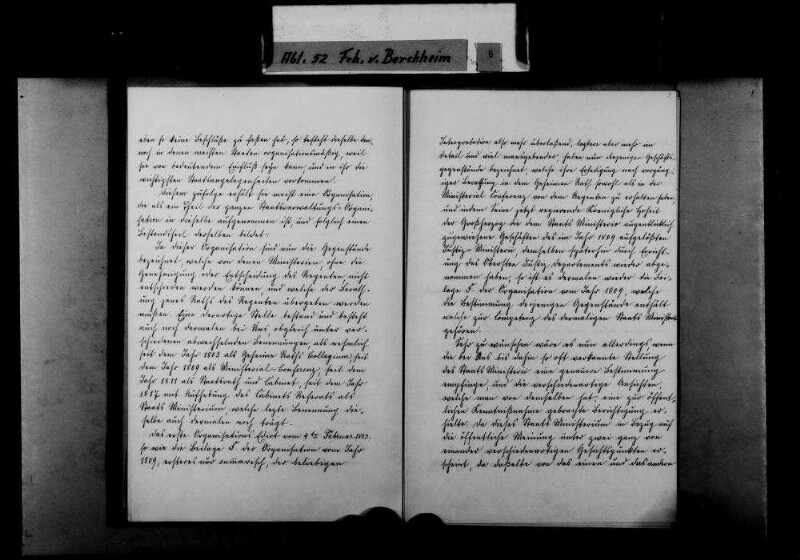 Abt. 52 Frh. v. Berckheim
6
eben so keine Beschlüße zu faßen hat, so besteht dieselbe den,
noch in denen meisten Staaten organisationsmäßig, weil
sie von bedeutendem Einfluß seyn kann und in ihr die
wichtigsten Staatsangelegenheiten vorkommen.
Diesem zufolge erhält sie meist eine Organisation,
die als ein Theil der ganzen Staatsverwaltungs-Organi-
sation in dieselbe aufgenommen ist, und folglich einen
Bestandtheil derselben bildet.
In dieser Organisation sind nun die Gegenstände
bezeichnet, welche von denen Ministerien, ohne die
Genehmigung oder Entscheidung des Regenten, nicht
entschieden werden können und welche der Berath-
ung jenes Raths des Regenten übergeben werden
müßen. Eine derartige Stelle bestand und besteht
auch noch dermalen bei Uns, obgleich unter ver-
schiedenen abwechselnden Benennungen, als nehmlich
seit dem Jahr 1803 als Geheime Raths Collegium; seit
dem Jahr 1809 als Ministerial-Conferenz, seit dem
Jahr 1811 als Staatsrath und Cabinet, seit dem Jahr
1817 mit Aufhebung des Cabinets Referats als
Staats Ministerium, welche lezte Benennung die-
selbe auch dermalen noch trägt.
Das erste Organisations Edict vom 4ten Februar 1803.
so wie die Beilage F. der Organisation vom Jahr
1809, ersteres nur summarisch, der beliebigen
Interpretation also mehr überlaßend, lezteres aber mehr im
Detail und viel maasgebender, haben nun diejenigen Geschäfts-
gegenstände bezeichnet, welche ihre Erledigung nach vorgäng-
iger Berathung in dem Geheimen Rath sowohl als in der
Ministerial Conferenz von dem Regenten zu erhalten haben,
und indem Seine jetzt regierende Königliche Hoheit
der Großherzog die dem Staats Ministerio augenblicklich
zugewiesene Geschäften des im Jahr 1809 aufgelößten
Justiz-Ministerii demselben späterhin durch Erricht-
ung des Obersten Justiz departements wieder abge-
nommen haben, so ist es dermalen wieder die Bei-
lage F. der Organisation vom Jahr 1809, welche
die Bestimmung derjenigen Gegenstände enthält
welche zur Competenz des dermaligen Staats Ministerii
gehören.
Sehr zu wünschen wäre es nun allerdings, wenn
die bei Uns bis dahin so oft verkannte Stellung
des Staats Ministerii eine genauere Bestimmung
empfinge, und die verschiedenartige Ansichten,
welche man von demselben hat, eine zur öffent-
lichen Kenntnißnahme gebrachte Berichtigung er-
hielte, da dieses Staats Ministerium in Bezug auf
die öffentliche Meinung unter zwei ganz von
einander verschiedenartigen Gesichtspunkten er-
scheint, da dasselbe von das einen und das andern